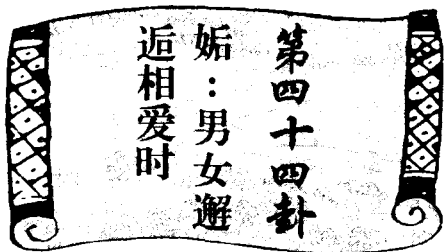 第四十四卦
姤：男女邂
逅相爱时